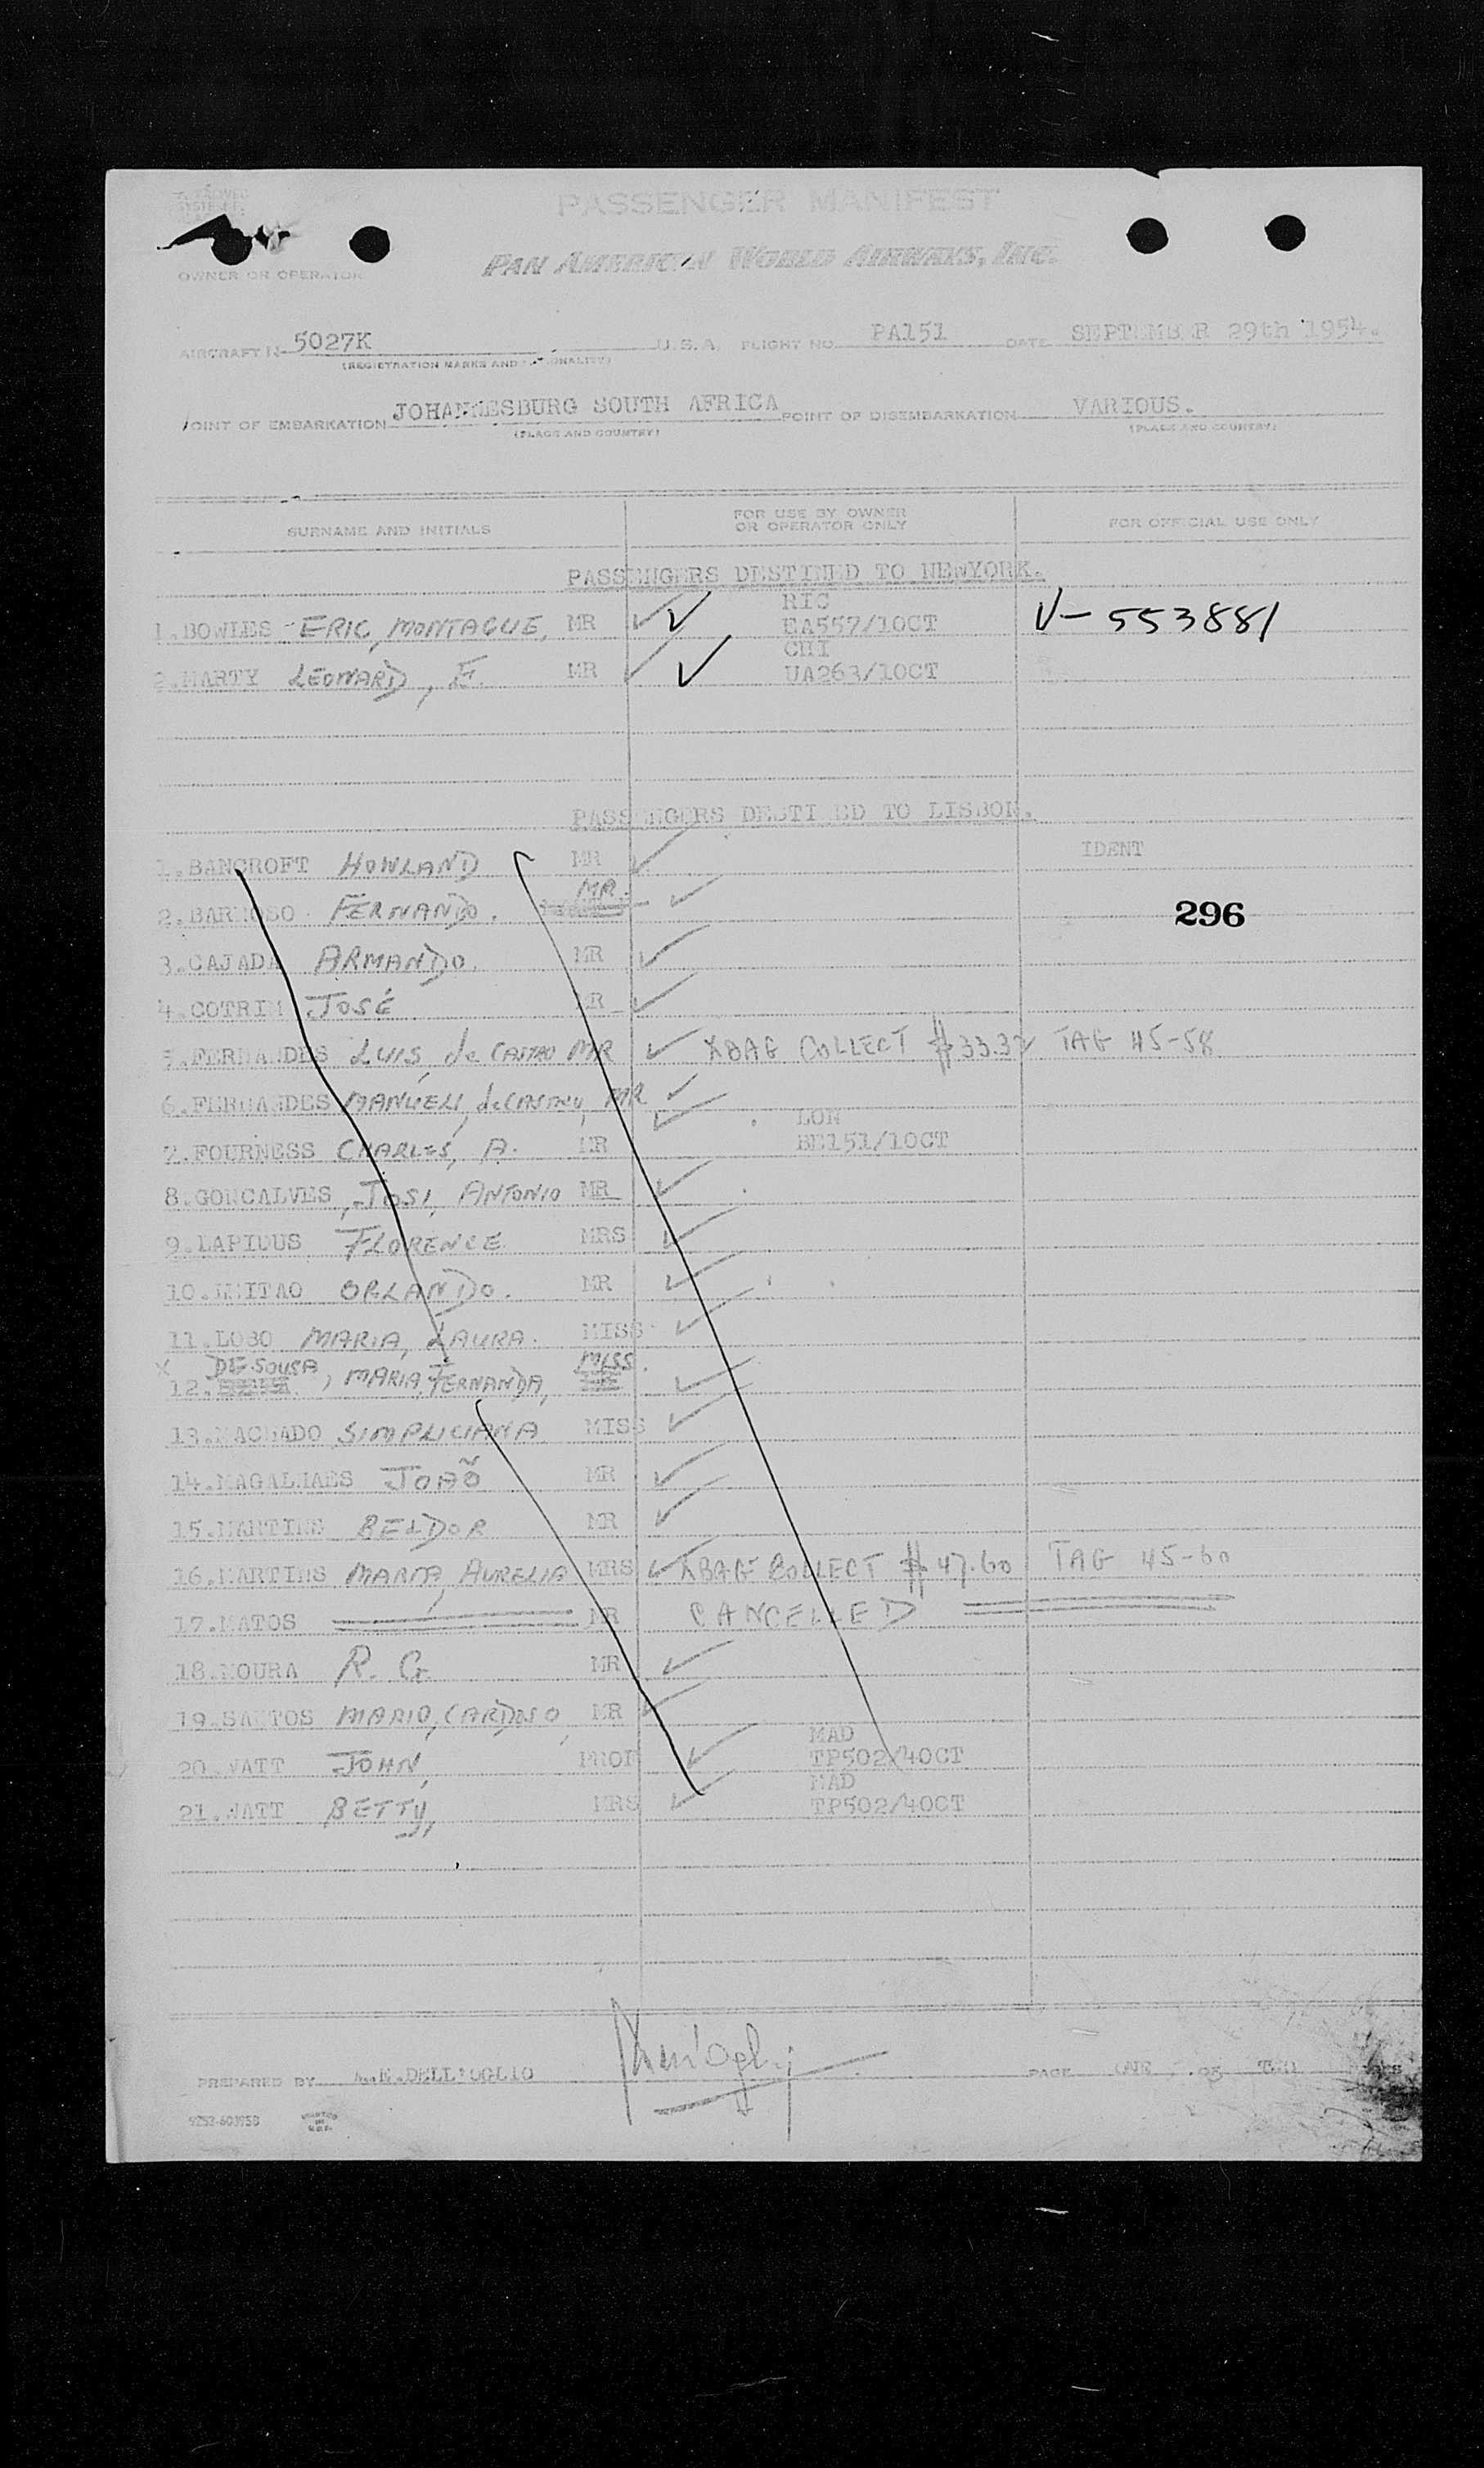 PASSENGER MANIFEST
PAN AMERICAN WORLD AIRWAYS, INC.
OWNER OR OPERATOR
AIRCRAFT N 5027K U.S.A. FLIGHT NO. PA151 DATE SEPTEMBER 29th 1954.
(REGISTRATION MARKS AND NATIONALITY)
POINT OF EMBARKATION JOHANNESBURG SOUTH AFRICA POINT OF DISEMBARKATION VARIOUS.
(PLACE AND COUNTRY) (PLACE AND COUNTRY)
SURNAME AND INITIALS FOR USE BY OWNER OR OPERATOR ONLY FOR OFFICIAL USE ONLY
PASSENGERS DESTINED TO NEWYORK.
RIC
1.BOWLES ERIC, MONTAGUE, MR EA557/1OCT V-553881
CHI
2.MARTY LEONARD, E. MR UA263/1OCT
PASSENGERS DESTINED TO LISBON.
1.BANCROFT HOWLAND MR IDENT
2.BARROSO FERNANDO. MR.
296
3.CAJADA ARMANDO. MR
4.COTRIM JOSÉ MR
5.FERNANDES LUIS, de CASTRO MR XBAG COLLECT $33.32 TAG 45-58
6.FERNANDES MANUEL, de CASTRO, MR
LON
7.FOURNESS CHARLES, A. MR BE151/1OCT
8.GONCALVES, JOSI, ANTONIO MR
9.LAPIDUS FLORENCE MRS
10.LEITAO ORLANDO. MR
11.LOBO MARIA, LAURA. MISS
X DE SOUSA MISS.
12. , MARIA FERNANDA,
13.MACHADO SIMPLICIANA MISS
14.MAGALHAES JOAÕ MR
15.MARTINS BELDOR MR
16.MARTINS MARIA, AURELIA MRS XBAG COLLECT $47.60 TAG 45-60
17.MATOS MR CANCELLED
18.MOURA R. G. MR
19.SANTOS MARIO, CARDOSO MR
MAD
20.WATT JOHN, PROF TP502/4OCT
MAD
21.WATT BETTY, MRS TP502/4OCT
PREPARED BY A.E.DELL'OGLIO PAGE ONE OF TWO